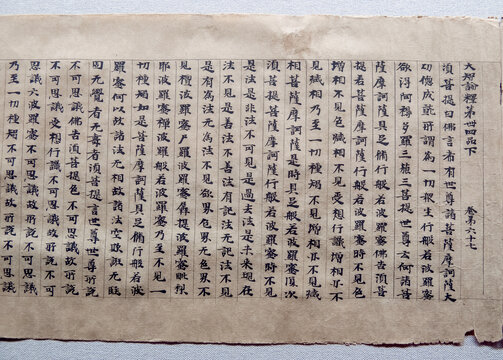 大智論釋第卌四品下 卷第六十七
須菩提白佛言希有世尊諸菩薩摩訶薩大
功德成就所謂為一切眾生行般若波羅蜜
欲得阿耨多羅三藐三菩提世尊云何諸菩
薩摩訶薩具足脩行般若波羅蜜佛告須菩
提若菩薩摩訶薩行般若波羅蜜時不見色
增相不見色減相不見受想行識增相亦不
見減相乃至一切種智不見增相亦不見減
相菩薩摩訶薩是時具足般若波羅蜜復次
須菩提菩薩摩訶薩行般若波羅蜜時不見
是法是非法不可見是過去法是未來現在
法不見是善法不善法有記法无記法不見
是有為法无為法不見欲界色界无色界不
見檀波羅蜜尸羅波羅蜜羼提波羅蜜毗梨
耶波羅蜜禪波羅蜜般若波羅蜜乃至不見一
切種智如是菩薩摩訶薩具足脩行般若波
羅蜜何以故諸法无相故諸法空欺誑无堅
固无覺者无壽者須菩提言世尊世尊所說
不可思議佛告須菩提色不可思議故所說
不可思議受想行識不可思議故所說不可
思議六波羅蜜不可思議故所說不可思議
乃至一切種智不可思議故所說不可思議